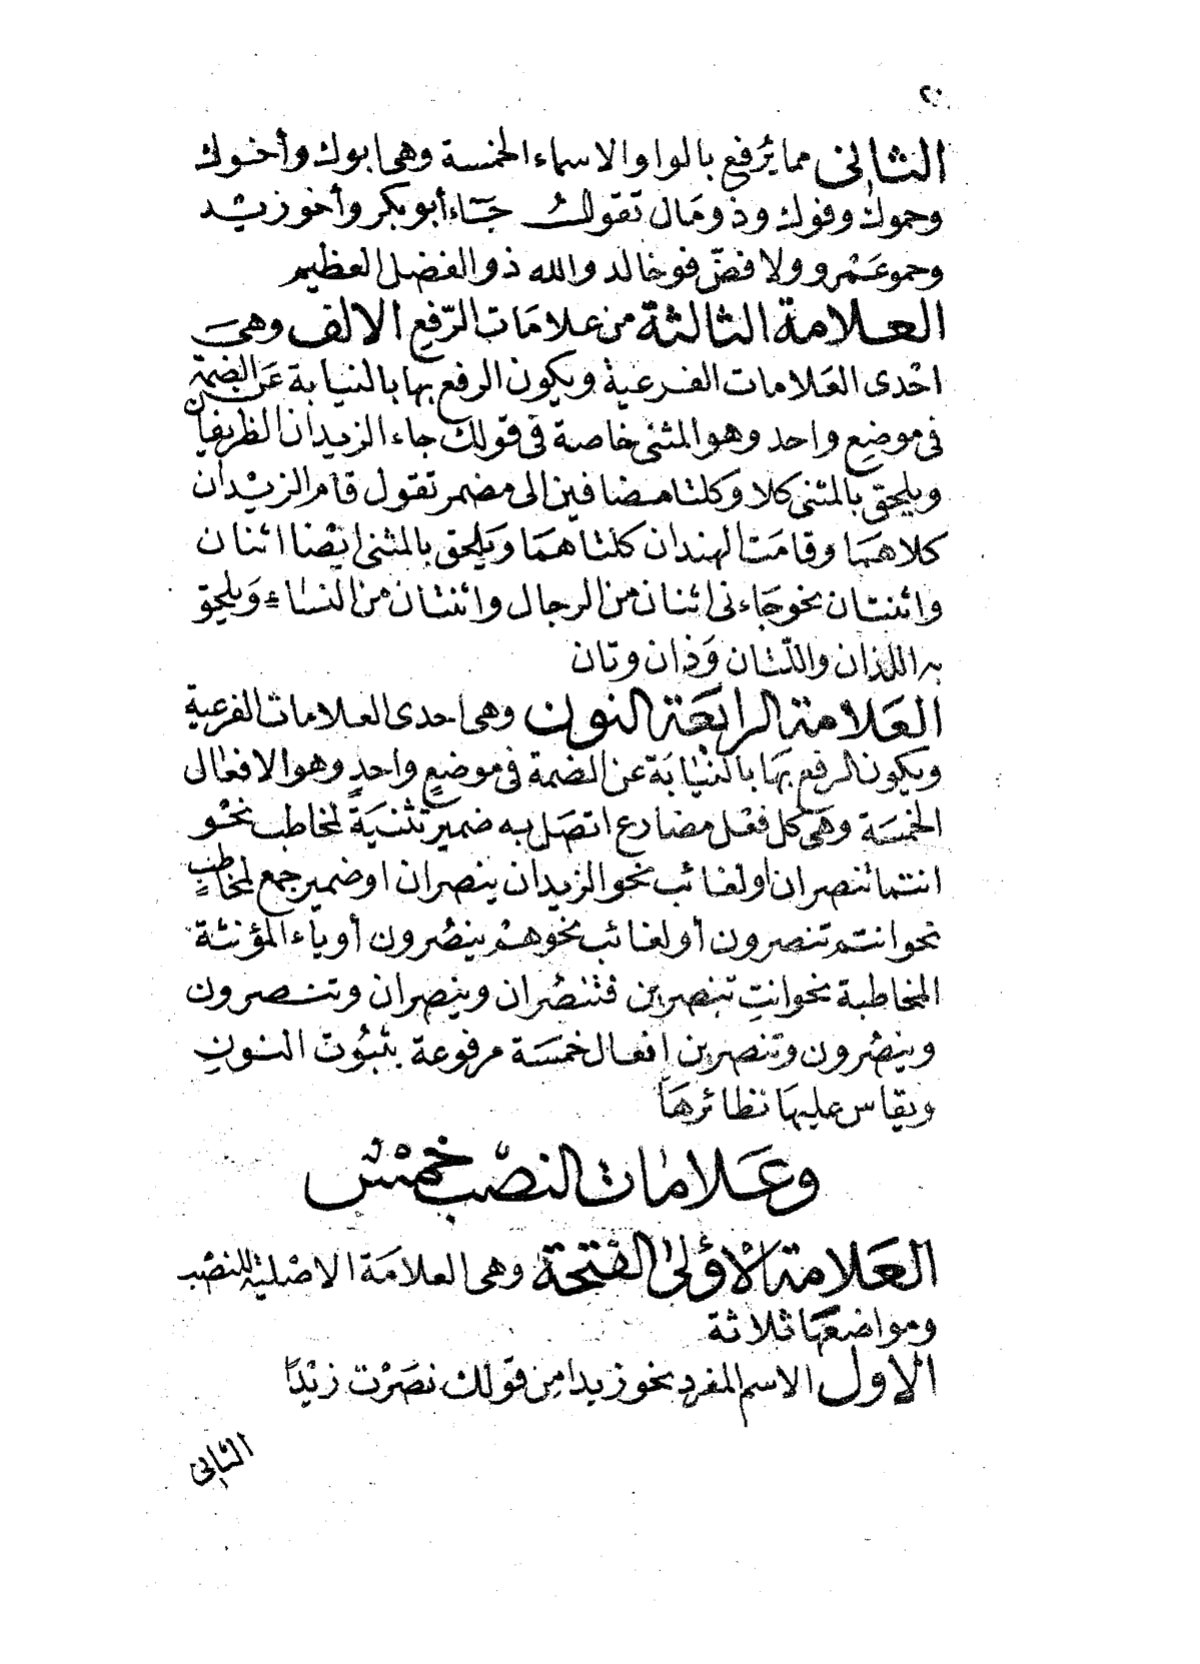 ٢٠
الثانى مما يُرفع بالواو الاسماء الخمسة وهى ابوك وأخوك
وحموك وفوك وذو مَال تقولُ جَاء أبو بكر وأخو زيْد
وحمو عَمْرو ولا فضّ فو خالد والله ذو الفضل العظيم
العلامة الثالثة من علامَات الرّفع الالف وهىَ
احْدى العَلامات الفرعية ويكون الرفع بها بالنيابة عَن الضمة
فى موضع واحد وهو المثنى خاصة فى قولك جاء الزيدان الظريفان
ويلحق بالمثنى كلا وكلتا مضافين الى مضمر تقول قام الزيْدان
كلاهمَا وقامَت الهندان كلتاهمَا ويَلحق بالمثنى ايْضا اثنان
واثنتان نحو جَاءنى اثنان من الرجال واثنتان من النسَاءِ وَيلحق
به اللذان واللّتان وَذان وتان
العَلامة الرابعَة النون وهى احدى العلامات الفرعية
ويكون الرفع بهَا بالنيَابَة عن الضمة فى موضعٍ واحدٍ وهو الافعَال
الخمسَة وهىَ كل فعْل مضارع اتصَل به ضمير تثنيَةً لمخاطب نحْو
انتما تنصران او لغائب نحو الزيدان ينصران او ضمير جمع لمخاطبٍ
نحو انتم تنصرون أو لغائب نحو همْ ينصُرون أو ياء المؤنثة
المخاطبة نحو انتِ تنصرين فتنصُران وينصران وتنصرون
وينصُرون وتنصرين افعال خمسَة مرفوعة بثبُوت النونِ
ويقاس عليهَا نظائرهَا
وعَلامات النصْب خمْس
العَلامة الأولى الفتحة وهى العلامَة الاصْلية للنصْب
ومواضعهَا ثلاثة
الاول الاسم المفرد نحو زيدا من قولك نصَرْت زيْدًا
الثانى